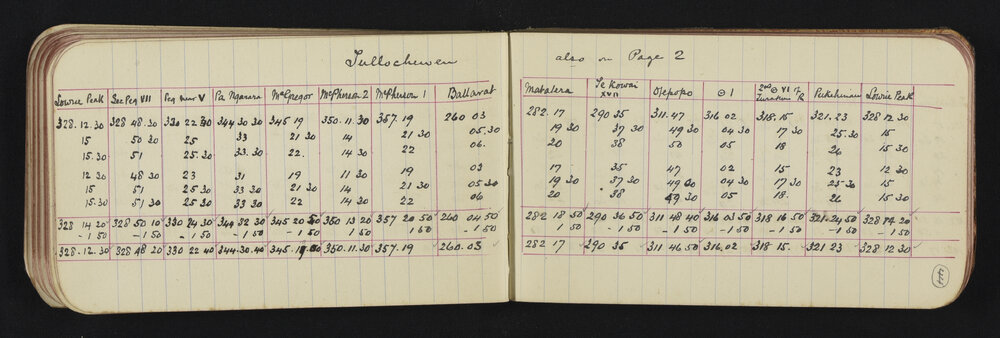 Tullochewen
Lowrie Peak Sec Peg VII Peg near V Pa Ngarara McGregor McPherson 2 McPherson 1 Ballarat
328.12.30 328 48.30 330 22 30 344 30 30 345 19 350.11.30 357.19 260 03
15 50 30 25 33 21 30 14 21 30 05.30
15.30 51 25.30 33.30 22. 14 30 22 06.
12 30 48 30 23 31 19 11 30 19 03
15 51 25 30 33 30 21 30 14 21 30 05 30
15.30 51 25.30 33.30 22 14.30 22 06
328 14 20 328 50 10 330 24 30 344 32 30 345 20 50 350 13 20 357 20 50 260 04 50
- 1 50 - 1 50 - 1 50 1 50 - 1 50 1 50 1 50 - 1 50
328.12.30 328 48 20 330 22 40 344.30.40 345.19 00 350.11.30 357.19 260.03
also on Page 2
Matalera Te Kowai XVII Ojepopo ⊙ 1 Pukehinau Lowrie Peak
282.17 290 35 311.47 316 02 318.15 321.23 328 12 30
19 30 37 30 49 30 04 30 17 30 25.30 15
20 38 50 05 18 26 15 30
17 35 47 02 15 23 12 30
19 30 37 30 49 00 04 30 17 30 25 30 15
20 38 49 30 05 18. 26 15 30
282 18 50 290 36 50 311 48 40 316 03 50 318 16 50 321.24 50 328 14 20
1 50 - 1 50 - 1 50 - 1 50 - 1 50 - 1 50 - 1 50
282 17 290 35 311 46 50 316.02 318 15. 321 23 328 12 30